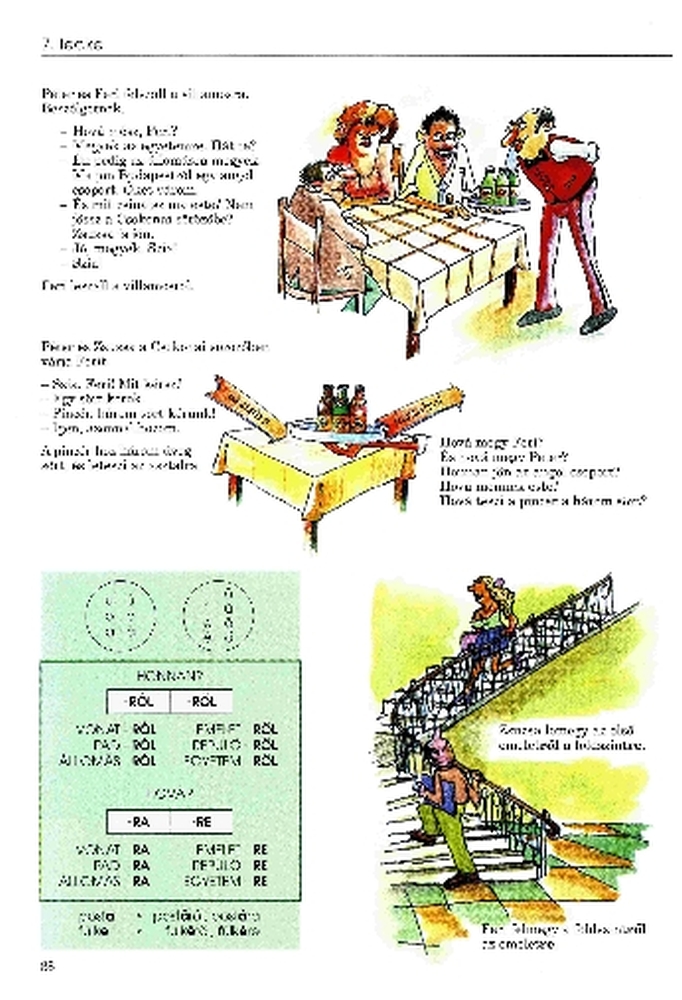 7. lecke
Péter és Feri felszáll a villamosra.
Beszélgetnek.
– Hová mész, Feri?
– Megyek az egyetemre. Hát te?
– Én pedig az állomásra megyek.
Budapestről egy angol
csoport. Őket várom.
– És mit este? Nem
jössz a Csokonai sörözőbe?
Zsuzsa is jön.
– Jó, megyek. Szia!
– Szia!
Feri leszáll a villamosról.
Péter és Zsuzsa a Csokonai sörözőben
várja Ferit.
– Szia, Feri! Mit kérsz?
– Egy sört kérek.
– Pincér, három sört kérünk!
– Igen, azonnal hozom.
A pincér hoz három üveg
sört, és leteszi az asztalra.
Hová megy Feri?
És hová megy Péter?
Honnan jön az angol csoport?
Hová mennek este?
Hová teszi a pincér a három sört?
HONNAN?
-RÓL -RŐL
VONAT RÓL EMELET RŐL
PAD RÓL REPÜLŐ RŐL
ÁLLOMÁS RÓL EGYETEM RŐL
HOVÁ?
-RA -RE
VONAT RA EMELET RE
PAD RA REPÜLŐ RE
ÁLLOMÁS RA EGYETEM RE
posta • postáról, postára
fülke • fülkéről, fülkére
Zsuzsa lemegy az első
emeletről a földszintre.
Feri felmegy a földszintről
az emeletre.
88